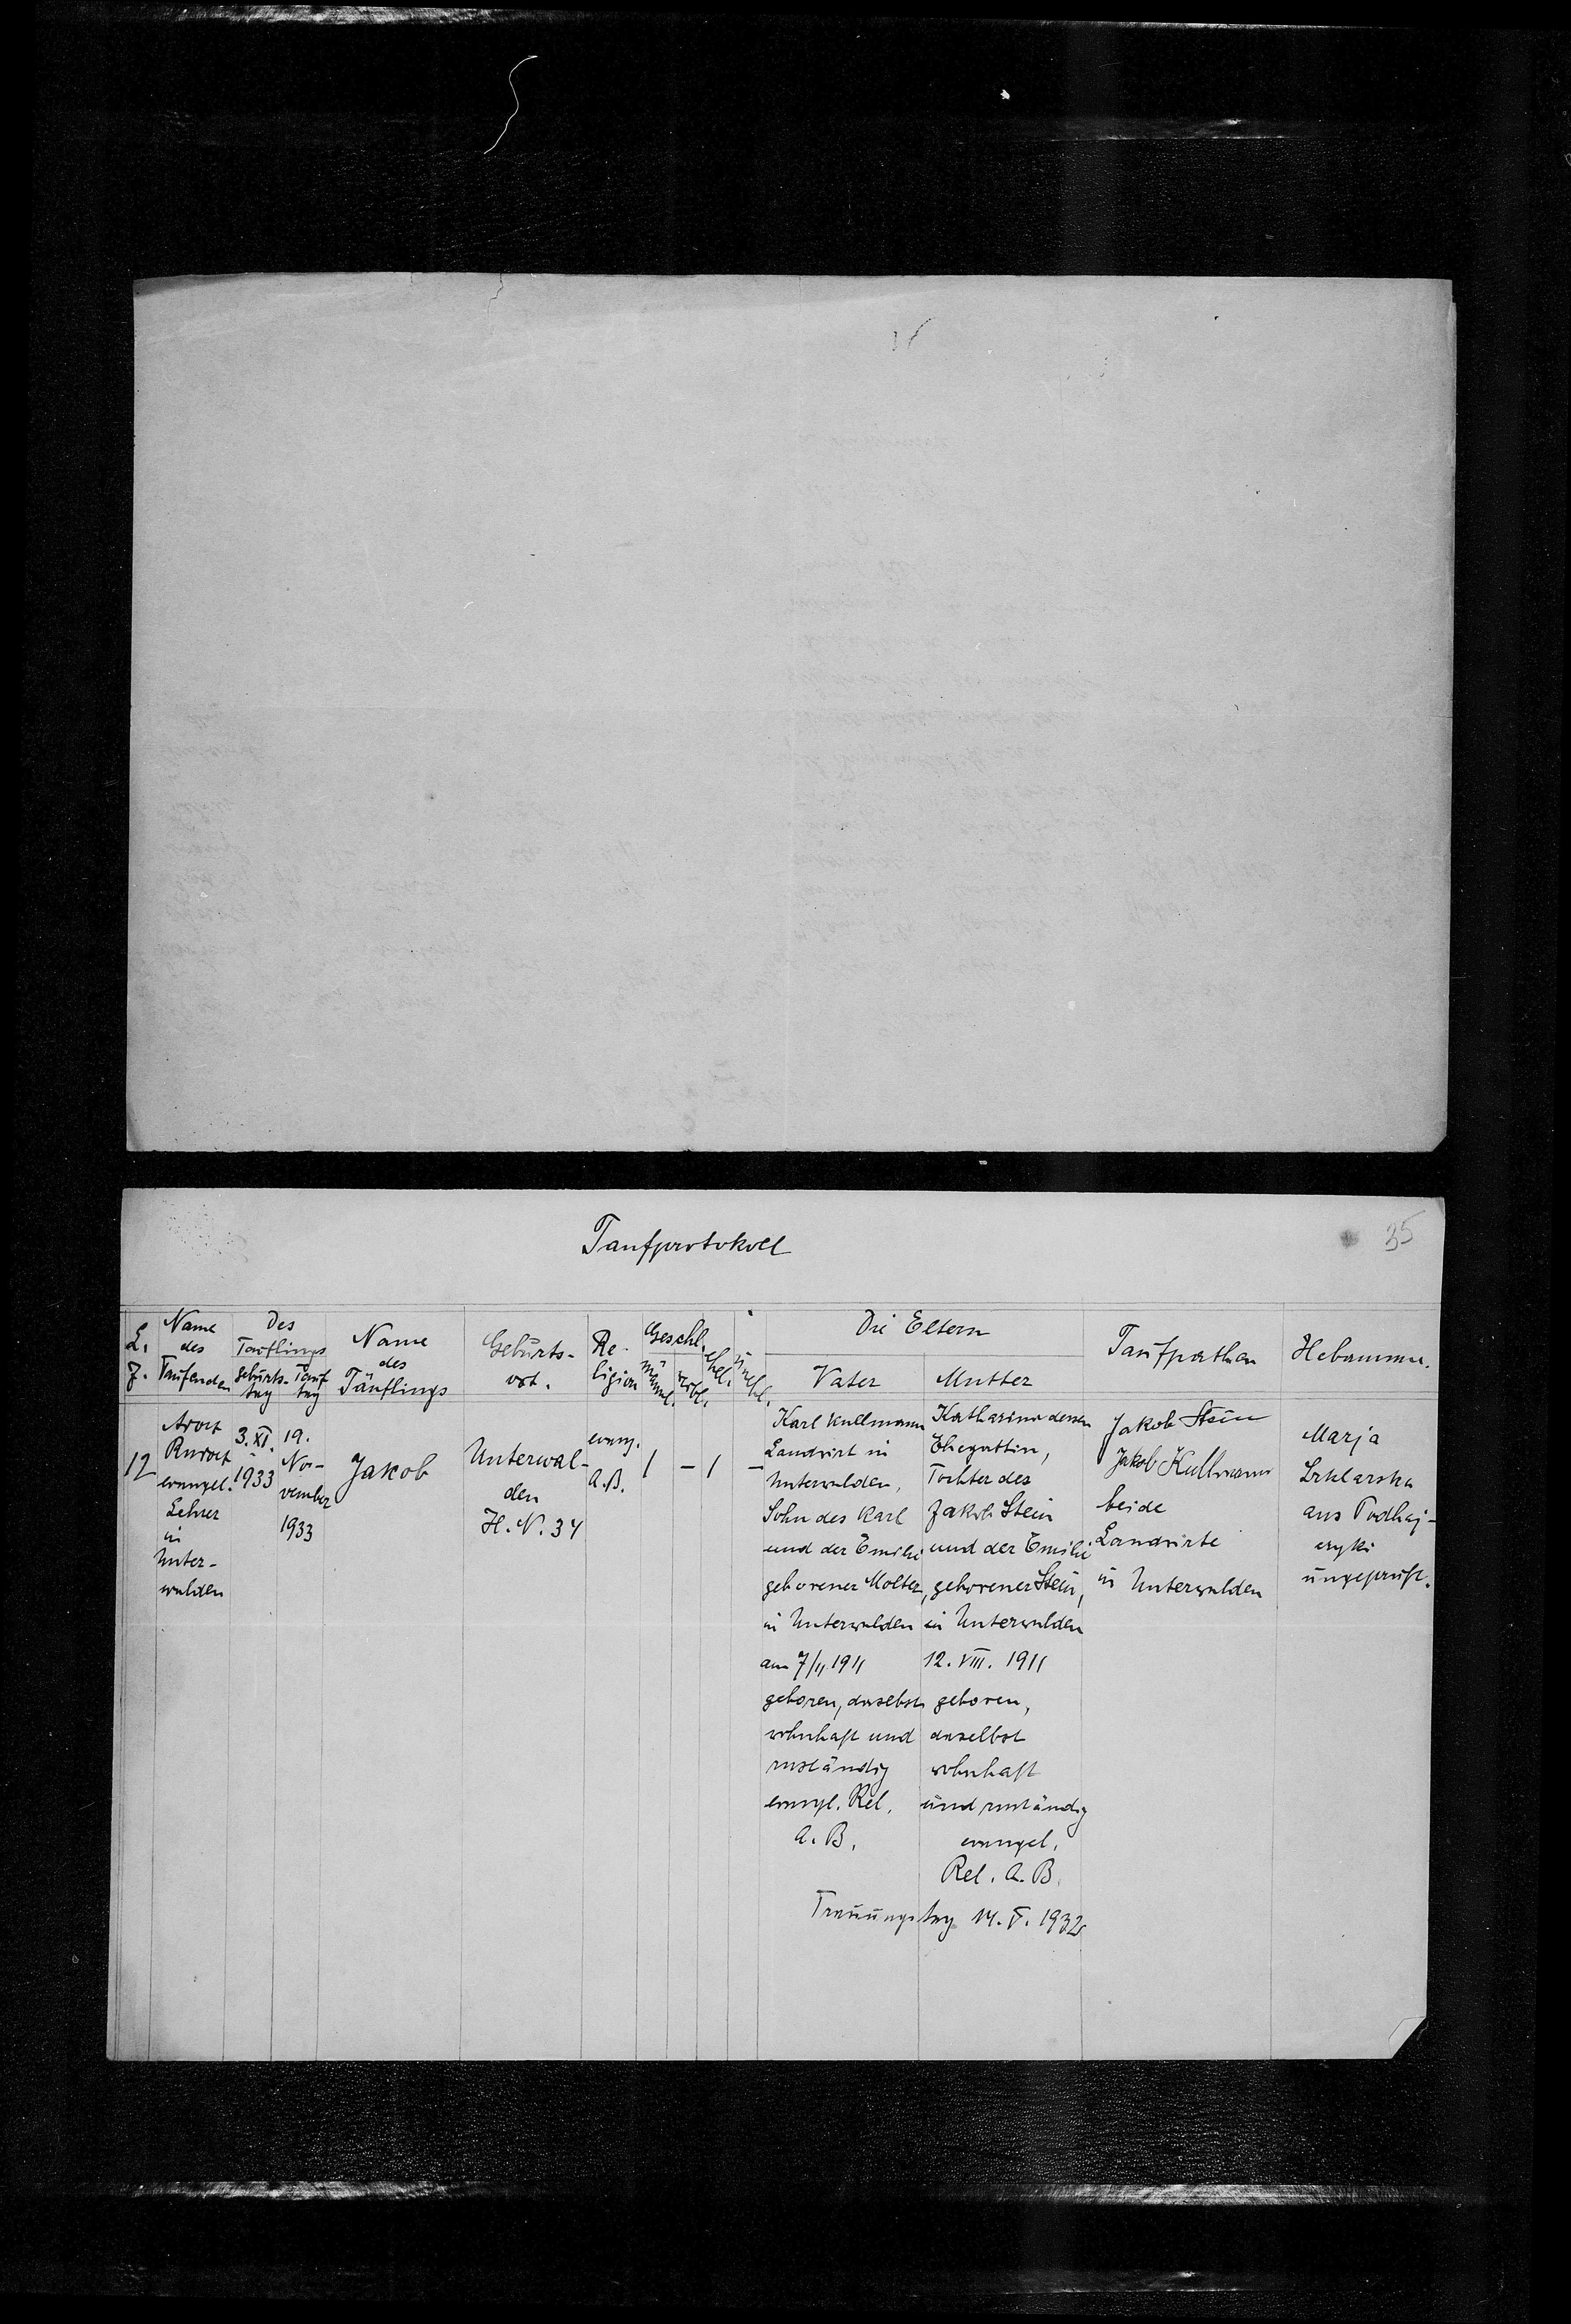 35
Taufprotokoll
L.
Z.
Name
des
Taufenden
Des
Täuflings
Geburts-
tag
Tauf
tag
Name
des
Täuflings
Geburts-
ort.
Re-
ligion
Geschl.
männl.
weibl.
ehel.
unehel.
Die Eltern
Vater
Mutter
Taufpathen
Hebamme.
12
evangel.
Lehrer
in
Unter-
walden
3. XI.
1933
19.
No-
vember
1933
Jakob
Unterwal-
den
H. N. 34
evang.
A.B.
1
-
1
-
Karl Kullmann
Landwirt in
Unterwalden,
Sohn des Karl
und der Emilie
geborener Molter,
in Unterwalden
am 7/II 1911
geboren, daselbst
wohnhaft und
zuständig
evangl. Rel.
A. B.
Katharina dessen
Ehegattin,
Tochter des
Jakob Stein
und der Emilie
geborener Stein,
in Unterwalden
12. VIII. 1911
geboren,
daselbst
wohnhaft
und zuständig
evangel.
Rel. A. B.
Trauungstag 14. V. 1932
Jakob Stein
Jakob Kullmann
beide
Landwirte
in Unterwalden
Marja
Szklarska
aus Podhaj-
czyki
ungeprüft.